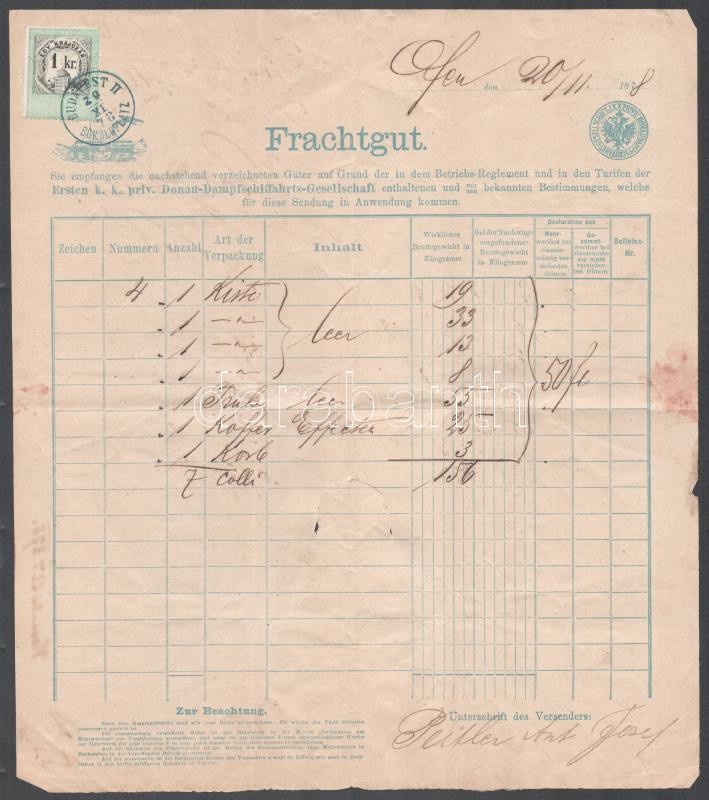 EGY KRAJCZÁR
1 kr.
BUDAPEST II
20
XI
Ofen den 20/11. 1878
Frachtgut.
Sie empfangen die nachstehend verzeichneten Güter auf Grund der in dem Betriebs-Reglement und in den Tarifen der
Ersten k. k. priv. Donau-Dampfschiffahrts-Gesellschaft enthaltenen und mir uns bekannten Bestimmungen, welche
für diese Sendung in Anwendung kommen.
Zeichen Nummern Anzahl Art der Verpackung Inhalt Wirkliches Bruttogewicht in Kilogramm Bei der Nachwage vorgefundenes Bruttogewicht in Kilogramm Declaration des Mehrwerthes bei classenmässig versicherten Gütern Gesammtwerthes bei classenmässig nicht versicherten Gütern Bolleten-Nr.
4 1 Kiste 19
1 —"— 33
1 —"— leer 13
1 —"— 8 50 fl
1 Truhe leer 55
1 Koffer Effecten 25
1 Korb 3
7 Colli 156
darabanth
Zur Beachtung.
Unterschrift des Versenders:
Peitler Ant Josef